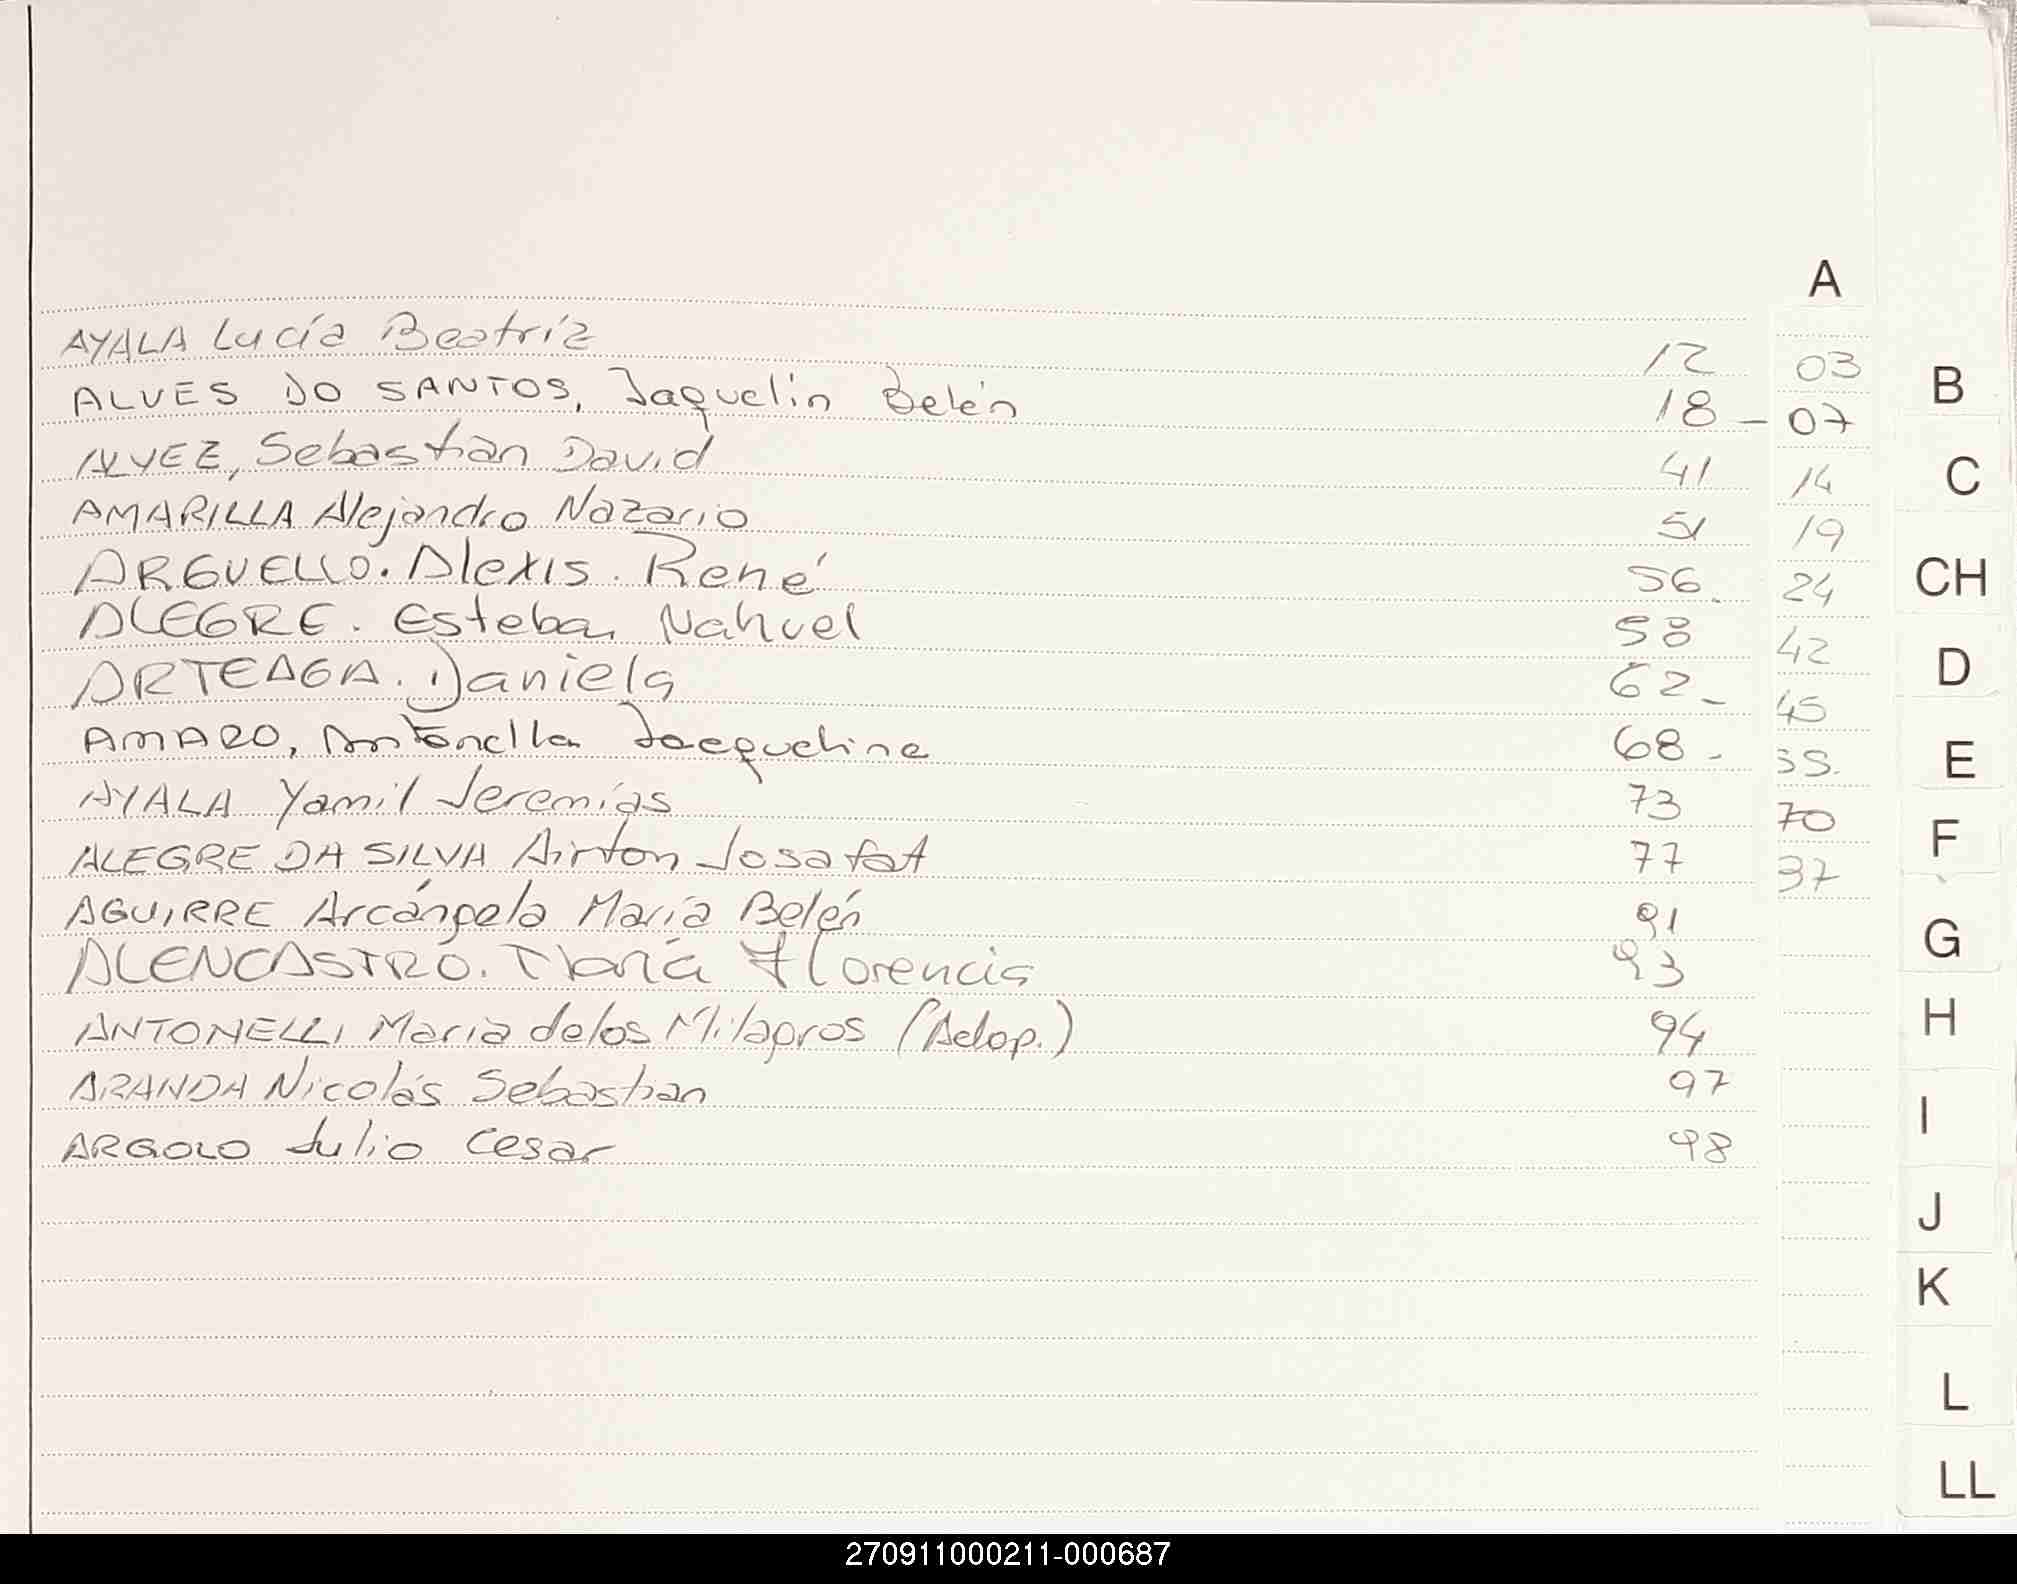 A
AYALA Lucía Beatríz 12 03
ALVES DO SANTOS, Jaquelin Belén 18 - 07
ALVEZ, Sebastian David 41 14
AMARILLA Alejandro Nazario 51 19
ARGUELLO. Alexis. René 56. 24
ALEGRE. Esteban Nahuel 58 42
ARTEAGA. Daniela 62 - 45
AMARO, Antonella Jacqueline 68 -
AYALA Yamil Jeremías 73 70
ALEGRE DA SILVA Airton Josafat 77 37
AGUIRRE Arcángela María Belén 91
ALENCASTRO. María Florencia 93
ANTONELLI María de los Milagros (Adop.) 94
ARANDA Nicolás Sebastian 97
ARGOLO Julio Cesar 98
B
C
CH
D
E
F
G
H
I
J
K
L
LL
270911000211-000687